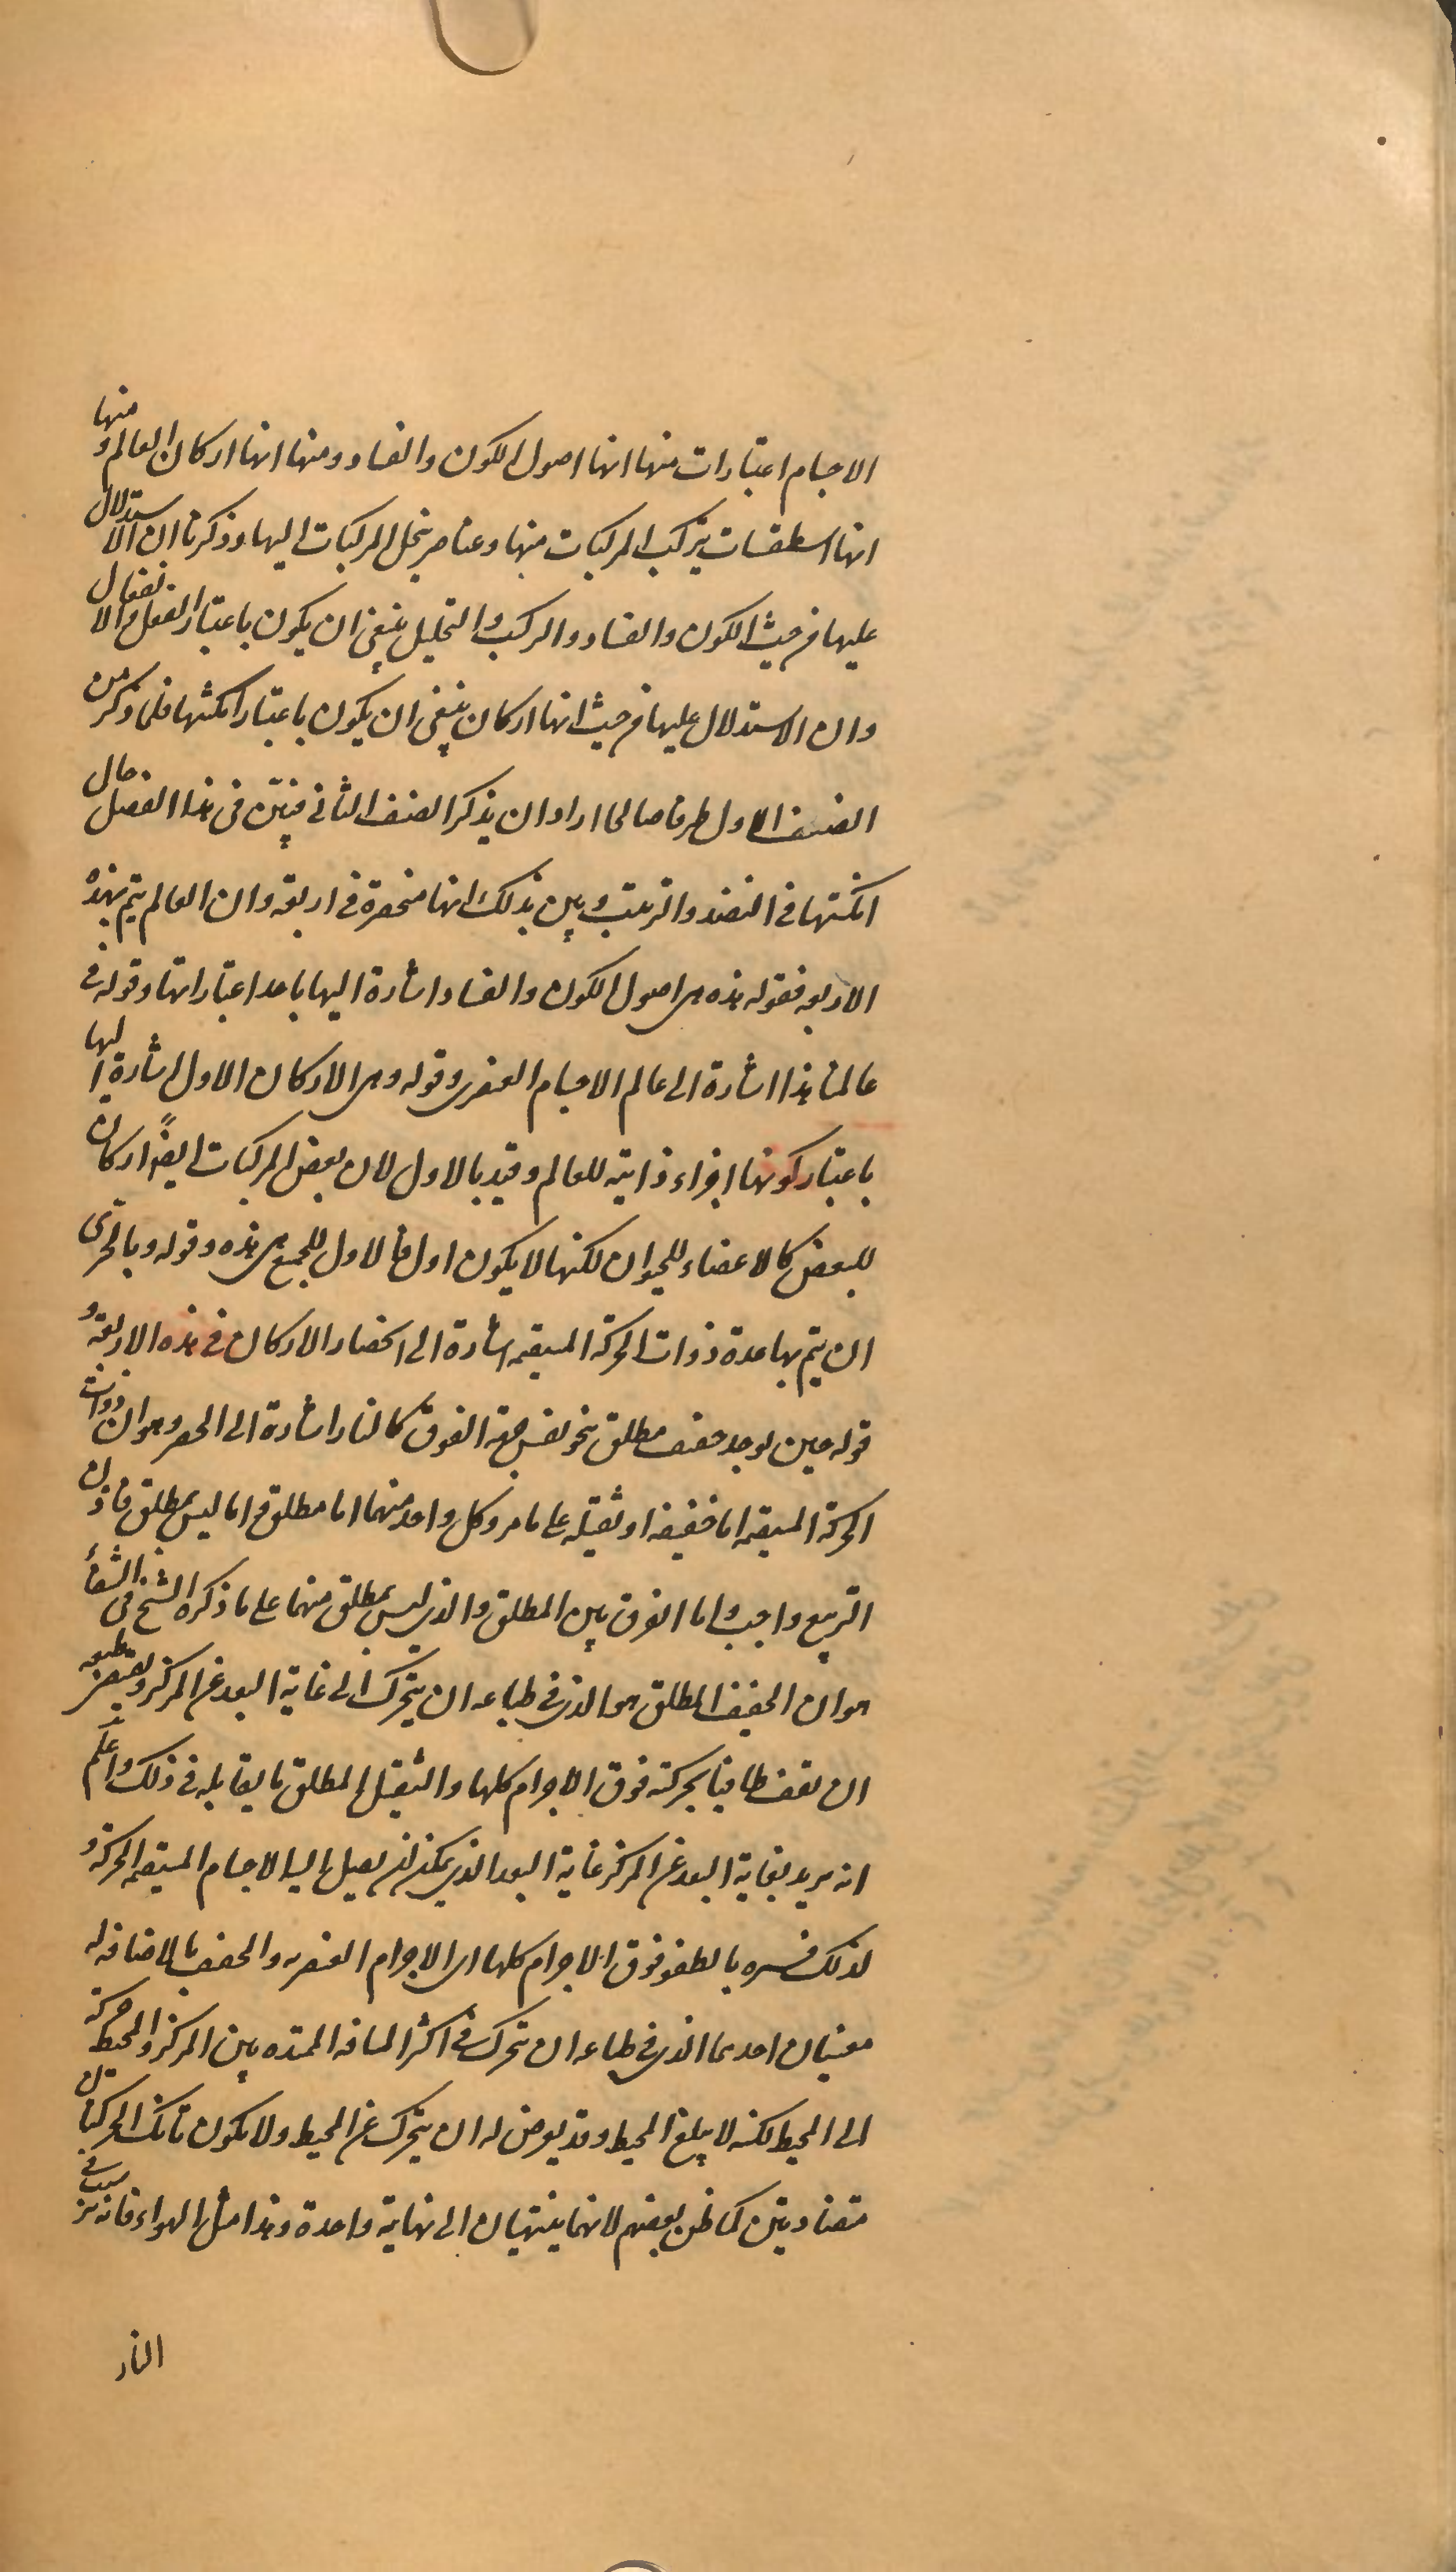 الاجسام اعتبارات منها انها اصول الكون والفساد ومنها انها اركان العالم و منها
انها اسطقسات يتركب المركبات منها وعناصر ينحل المركبات اليها وذكرنا ان الاستدلال
عليها من حيث الكون والفساد والتركيب والتحليل ينبغى ان يكون باعتبار الفعل والانفعال
وان الاستدلال عليها من حيث انها اركان ينبغى ان يكون باعتبار امكنتها فلما ذكر من
الصنف الاول طرفا صالحا اراد ان يذكر الصنف الثانى فبيّن فى هذا الفصل حال
امكنتها فى النضد والترتيب وبين بذلك انها منحصرة فى اربعة وان العالم يتم بهذه
الاربعه فقوله هذه هى اصول الكون والفساد اشارة اليها باحد اعتباراتها وقوله فى
عالمنا هذا اشارة الى عالم الاجسام العنصرى وقوله وهى الاركان الاول اشارة اليها
باعتبار كونها اجزاء ذاتية للعالم وقيد بالاول لان بعض المركبات ايضًا اركان
للبعض كالاعضاء للحيوان لكنها لا يكون اول فالاول للجميع هى هذه وقوله وبالحرى
ان يتم بها عدة ذوات الحركة المستقيمه اشارة الى انحصار الاركان فى هذه الاربعة و
قوله حين يوجد خفيف مطلق ينحو نفس جهة الفوق كالنار اشارة الى الحصر وهو ان ذوات
الحركة المستقيمه اما خفيفه او ثقيله على ما مر وكل واحد منهما اما مطلق واما ليس بمطلق فاذن
التربيع واجب واما الفرق بين المطلق والذى ليس بمطلق منهما على ما ذكره الشيخ فى الشفأ
هو ان الخفيف المطلق هو الذى فى طباعه ان يتحرك الى غاية البعد عن المركز ويقتضى طبعه
ان يقف طافيا بحركته فوق الاجرام كلها والثقيل المطلق ما يقابله فى ذلك واعلم
انه يريد بغاية البعد عن المركز غاية البعد الذى يمكن ان يصل اليه الاجسام المستقيمه الحركة و
لذلك فسره بالطفو فوق الاجرام كلها اى الاجرام العنصريه والخفيف بالاضافه له
معنيان احدهما الذى فى طباعه ان يتحرك فى اكثر المسافه الممتده بين المركز والمحيط حركة
الى المحيط لكنه لا يبلغ المحيط وقد يعرض له ان يتحرك عن المحيط ولا يكون تانك الحركتان
متضادتين كما ظن بعضهم لانهما ينتهيان الى نهاية واحدة وهذا مثل الهواء فانه يرسب فى
النار